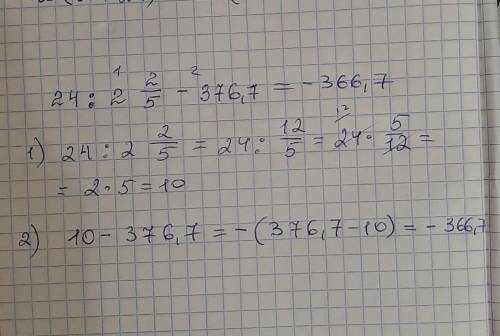 24 : 2 2/5 - 376,7 = -366,7
1) 24 : 2 2/5 = 24 : 12/5 = 24 · 5/12 =
= 2 · 5 = 10
2) 10 - 376,7 = -(376,7 - 10) = -366,7